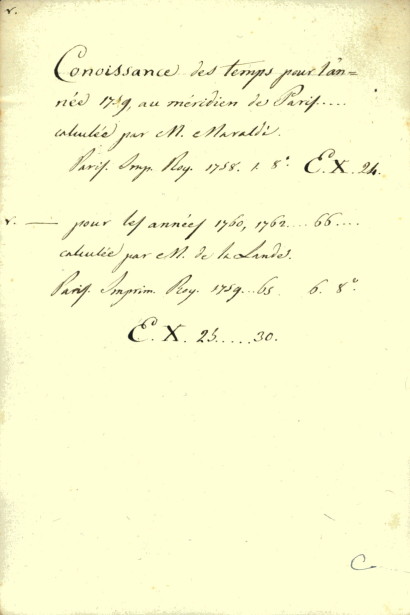 v.
Conoissance des temps pour l'an=
née 1759, au méridien de Paris.....
calculée par M. Maraldi.
Paris. Imp. Roy. 1758. 1. 8°. E. X. 24.
v. — pour les années 1760, 1762.... 66....
calculée par M. de la Lande.
Paris. Imprim. Roy. 1759...65 6. 8°.
E. X. 25.....30.
C